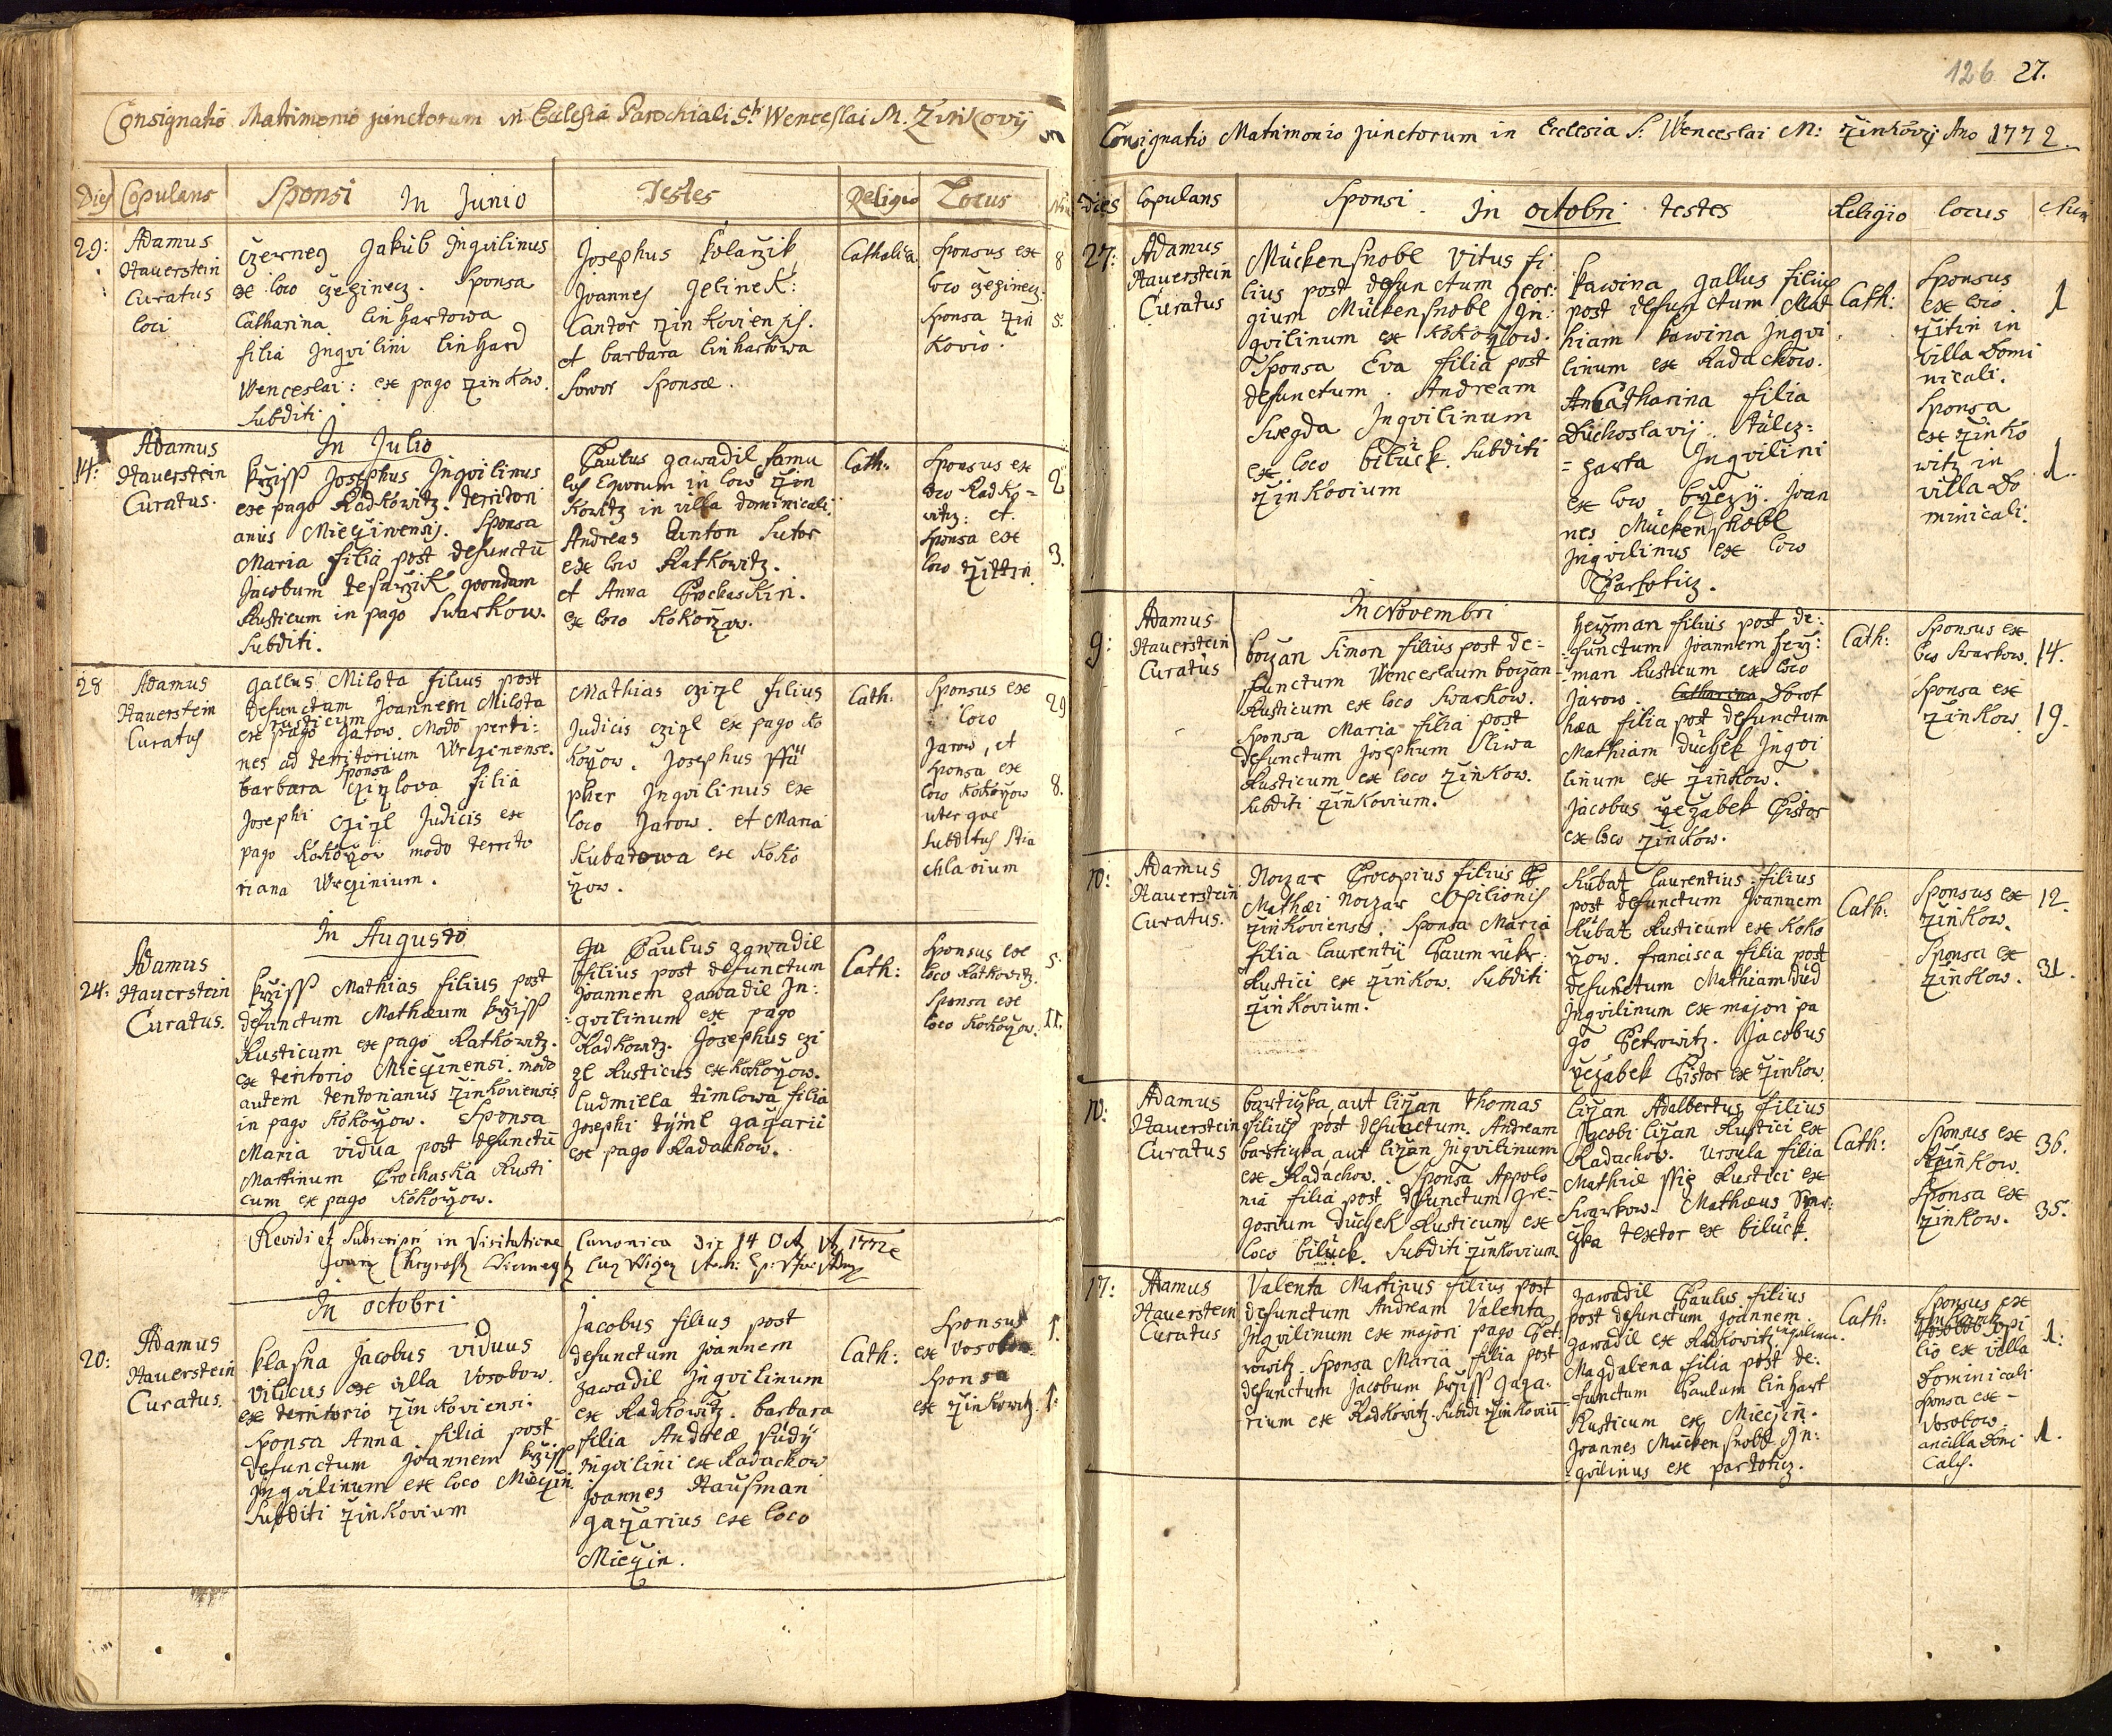 Consignatio Matrimonio junctorum in Ecclesia Parochiali St. Wenceslai M. Zinkovij
Dies Copulans Sponsi In Junio Testes Religio Locus
29:
Adamus
Hauerstein
Curatus
loci
Czerney Jakub Ingvilinus
ex loco Czeczinecz. Sponsa
Catharina linhartowa
filia Ingvilini linhard
Wenceslai: ex pago Zinkow.
Subditi
Josephus kolarzik
Joannes Gelinek:
Cantor Zinkoviensis.
et barbara linhartowa
Soror Sponsæ.
Catholica
Sponsus ex
loco
Sponsa Zin
kovio.
8
5.
In Julio
14:
Adamus
Hauerstein
Curatus.
krziss Josephus Ingvilinus
ex pago Radkowitz. territori
anus Mieczinensis. Sponsa
Maria filia post defunctu
Jacobum tesarzik quondam
Rusticum in pago Swarkow.
Subditi.
Paulus zawadil famu
lus Equorum in loco Zin
kowitz in villa dominicali.
Andreas Anton Sutor
ex loco Ratkowitz.
et Anna Prochaskin.
ex loco Kokorzow.
Cath:
Sponsus ex
loco Radko=
witz: et
Sponsa ex
loco Zittin.
2
3.
28
Adamus
Hauerstein
Curatus
Gallus Milota filius post
defunctum Joannem Milota
rusticum
ex pago Jarow. Modo perti:
nes ad territorium Wrczinense.
Sponsa
barbara Czizlova filia
Josephi Czizl Judicis ex
pago Kokorzow modo territo
riana Wrczinium.
Mathias Czizl filius
Judicis Czizl ex pago Ko
korzow. Josephus
pher Ingvilinus ex
loco Jarow. et Maria
Kubatowa ex Koko
rzow.
Cath:
Sponsus ex
loco
Jarow, et
Sponsa ex
loco Kokorzow
uterque
subditus Stia
hlavium
29
8.
In Augusto
24:
Adamus
Hauerstein
Curatus.
krziss Mathias filius post
defunctum Mathæum krziss
Rusticum ex pago Ratkowitz.
ex teritorio Mieczinensi. modo
autem teritorianus Zinkoviensis
in pago Kokorzow. Sponsa
Maria vidua post defunctu
Martinum Prochaska Rusti
cum ex pago Kokorzow.
Paulus zawadil
filius post defunctum
Joannem zawadil In:
gvilinum ex pago
Radkowitz. Josephus Czi
zl Rusticus ex Kokorzow.
Ludmilla timlowa filia
Josephi tyml gazarii
ex pago Radachow.
Cath:
Sponsus ex
loco Ratkowitz.
Sponsa ex
loco Kokorzow.
5.
11.
Revidi et Subscripsi in Visitatione Canonica Die 14 Oct 1772
In octobri
20:
Adamus
Hauerstein
Curatus.
Klasna Jacobus viduus
vilicus ex villa Vosobow.
ex territorio Zinkoviensi.
Sponsa Anna filia post
defunctum Joannem krziss
Ingvilinum ex loco Mieczin.
Subditi Zinkovium
Jacobus filius post
defunctum Joannem
zawadil Ingvilinum
ex Radkowitz. barbara
filia Andreæ
Ingvilini ex Radachow
Joannes Hausman
gazarius ex loco
Mieczin.
Cath:
Sponsus
ex Vosobow.
Sponsa
ex Zinkowitz.
1.
1.
126 27.
Consignatio Matrimonio junctorum in Ecclesia S: Wenceslai M: Zinkovij Ano 1772.
Dies Copulans Sponsi In octobri testes Religio locus Num
27:
Adamus
Hauerstein
Curatus
Muckensnobl Vitus fi
lius post defunctum Geor:
gium Muckensnobl In:
gvilinum ex Kokorzow.
Sponsa Eva filia post
defunctum Andream
Swegda Ingvilinum
ex loco biluck. Subditi
Zinkovium
kawina Gallus filius
post defunctum Mat
hiam kawina Ingvi
linum ex Radachow.
Catharina filia
Duchoslavij
=zarta Ingvilini
ex loco brzezy. Joan
nes Muckenshobl
Ingvilinus ex loco
Partoticz.
Cath:
Sponsus
ex loco
Zitin in
villa Domi
nicali.
Sponsa
ex Zinko
witz in
villa Do
minicali.
1
1.
In Novembri
9:
Adamus
Hauerstein
Curatus
borzan Simon filius post de=
functum Wenceslaum borzan
Rusticum ex loco Swarkow.
Sponsa Maria filia post
defunctum Josephum Sliwa
Rusticum ex loco Zinkow.
Subditi Zinkovium.
Herzman filius post de:
functum Joannem Herz:
man Rusticum ex loco
Jarow. Catharina Dorot
hæa filia post defunctum
Mathiam Duchek Ingvi
linum ex Zinkow.
Jacobus Gezabek Pistor
ex loco Zinkow.
Cath:
Sponsus ex
loco Swarkow.
Sponsa ex
Zinkow
14.
19.
10:
Adamus
Hauerstein
Curatus.
Norzar Procopius filius
Mathæi Norzar Opilionis
Zinkoviensis. Sponsa Maria
filia laurentij Paumrukr
Rustici ex Zinkow. Subditi
Zinkovium.
Kubat laurentius filius
post defunctum Joannem
Kubat Rusticum ex Koko
rzow. francisca filia post
defunctum Mathiam dud
Ingvilinum ex majori pa
go Petrowitz. Jacobus
Gezabek Pistor ex Zinkow.
Cath:
Sponsus ex
Zinkow.
Sponsa ex
Zinkow.
12.
31.
10:
Adamus
Hauerstein
Curatus
bartizka aut lizan Thomas
filius post defunctum Andream
bartizka aut lizan Ingvilinum
ex Radachow. Sponsa Appolo
nia filia post defunctum Gre=
gorium Duchek Rusticum ex
loco biluck. Subditi Zinkovium
lizan Adalbertus filius
Jacobi lizan Rustici ex
Radachow. Ursula filia
Mathiæ Rustici ex
Swarkow. Mathæus
textor ex biluck.
Cath:
Sponsus ex
Zinkow.
Sponsa ex
Zinkow.
36.
35.
17:
Adamus
Hauerstein
Curatus
Valenta Martinus filius post
defunctum Andream Valenta
Ingvilinum ex majori pago Pet:
rowitz. Sponsa Maria filia post
defunctum Jacobum krziss gaza:
rium ex Radkowitz. Subditi Zinkoviu
zawadil Paulus filius
post defunctum Joannem
zawadil ex Radkowitz
Magdalena filia post de:
functum Paulum linhart
Rusticum ex Mieczin.
Joannes Muckensnobl In:
gvilinus ex partoticz.
Cath:
Sponsus ex
lio ex villa
Dominicali
Sponsa ex
Vosobow
ancilla Domi
1:
1.